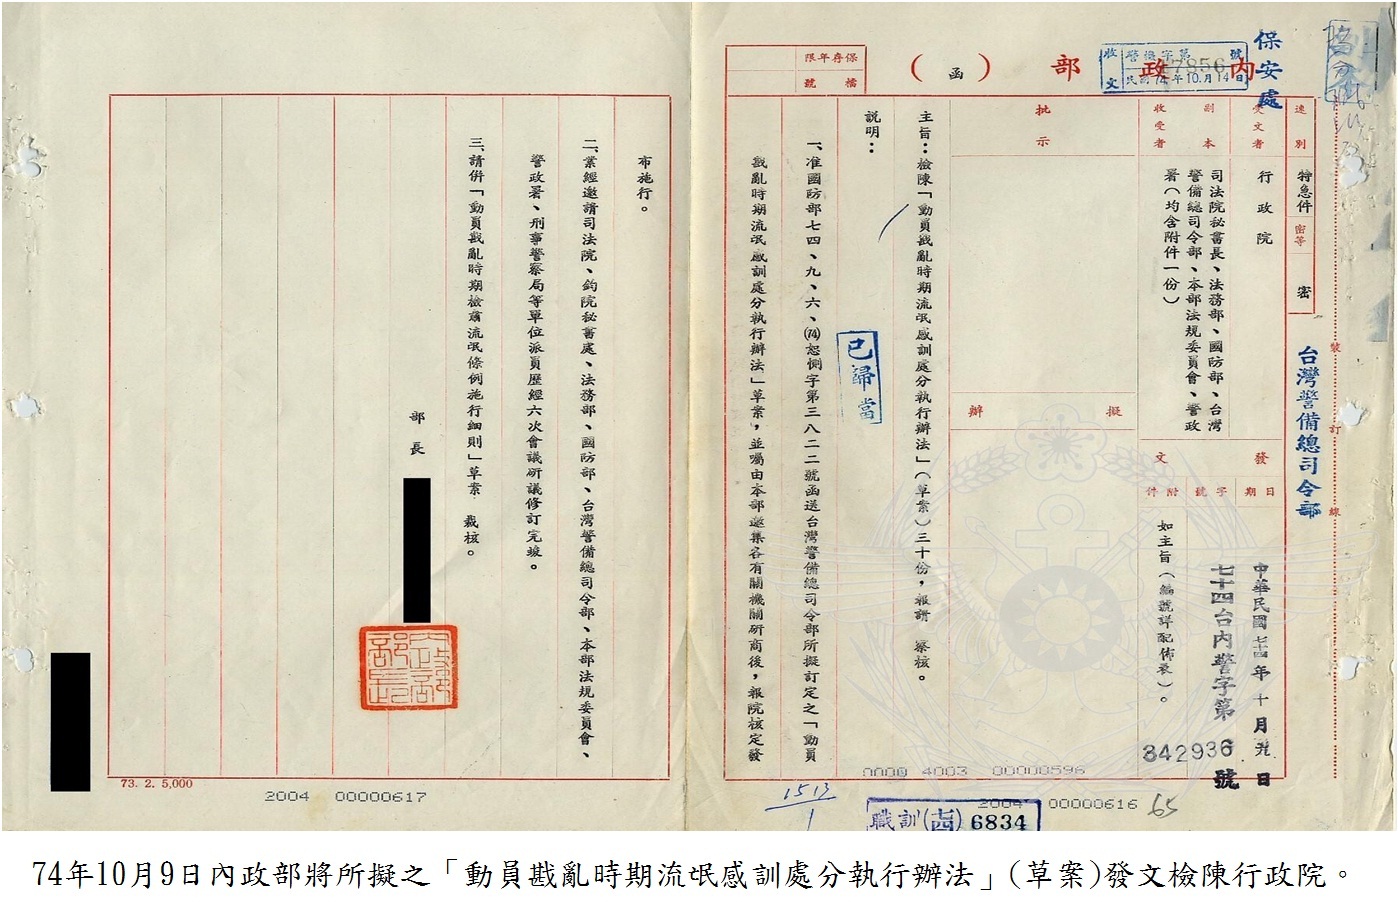 保存年限
檔號
內政部（函）
收文
警 字第7856號
民國74年10月14日
保安處
速別
特急件
密等
密
台灣警備總司令部
裝
訂
線
受文者
行政院
副本收受者
司法院秘書長、法務部、國防部、台灣
警備總司令部、本部法規委員會、警政
署（均含附件一份）
批示
擬辦
發文
日期
字號
附件
中華民國七十四年十月 九 日
七十四台內警字第342936號
如主旨（編號詳配佈表）。
主旨：檢陳「動員戡亂時期流氓感訓處分執行辦法」（草案）三十份，報請 察核。
說明：
一、准國防部七四、九、六、(74)恕惻字第三八二二號函送台灣警備總司令部所擬訂定之「動員
戡亂時期流氓感訓處分執行辦法」草案，並囑由本部邀集各有關機關研商後，報院核定發
已歸當
0000 4003 00000596
1513
1
2004 00000616
65
職訓(四)6834
布施行。
二、業經邀請司法院、鈞院秘書處、法務部、國防部、台灣警備總司令部、本部法規委員會、
警政署、刑事警察局等單位派員歷經六次會議研議修訂完竣。
三、請併「動員戡亂時期檢肅流氓條例施行細則」草案 裁核。
部長
內政部部長
73. 2. 5,000
2004 00000617
74年10月9日內政部將所擬之「動員戡亂時期流氓感訓處分執行辦法」(草案)發文檢陳行政院。